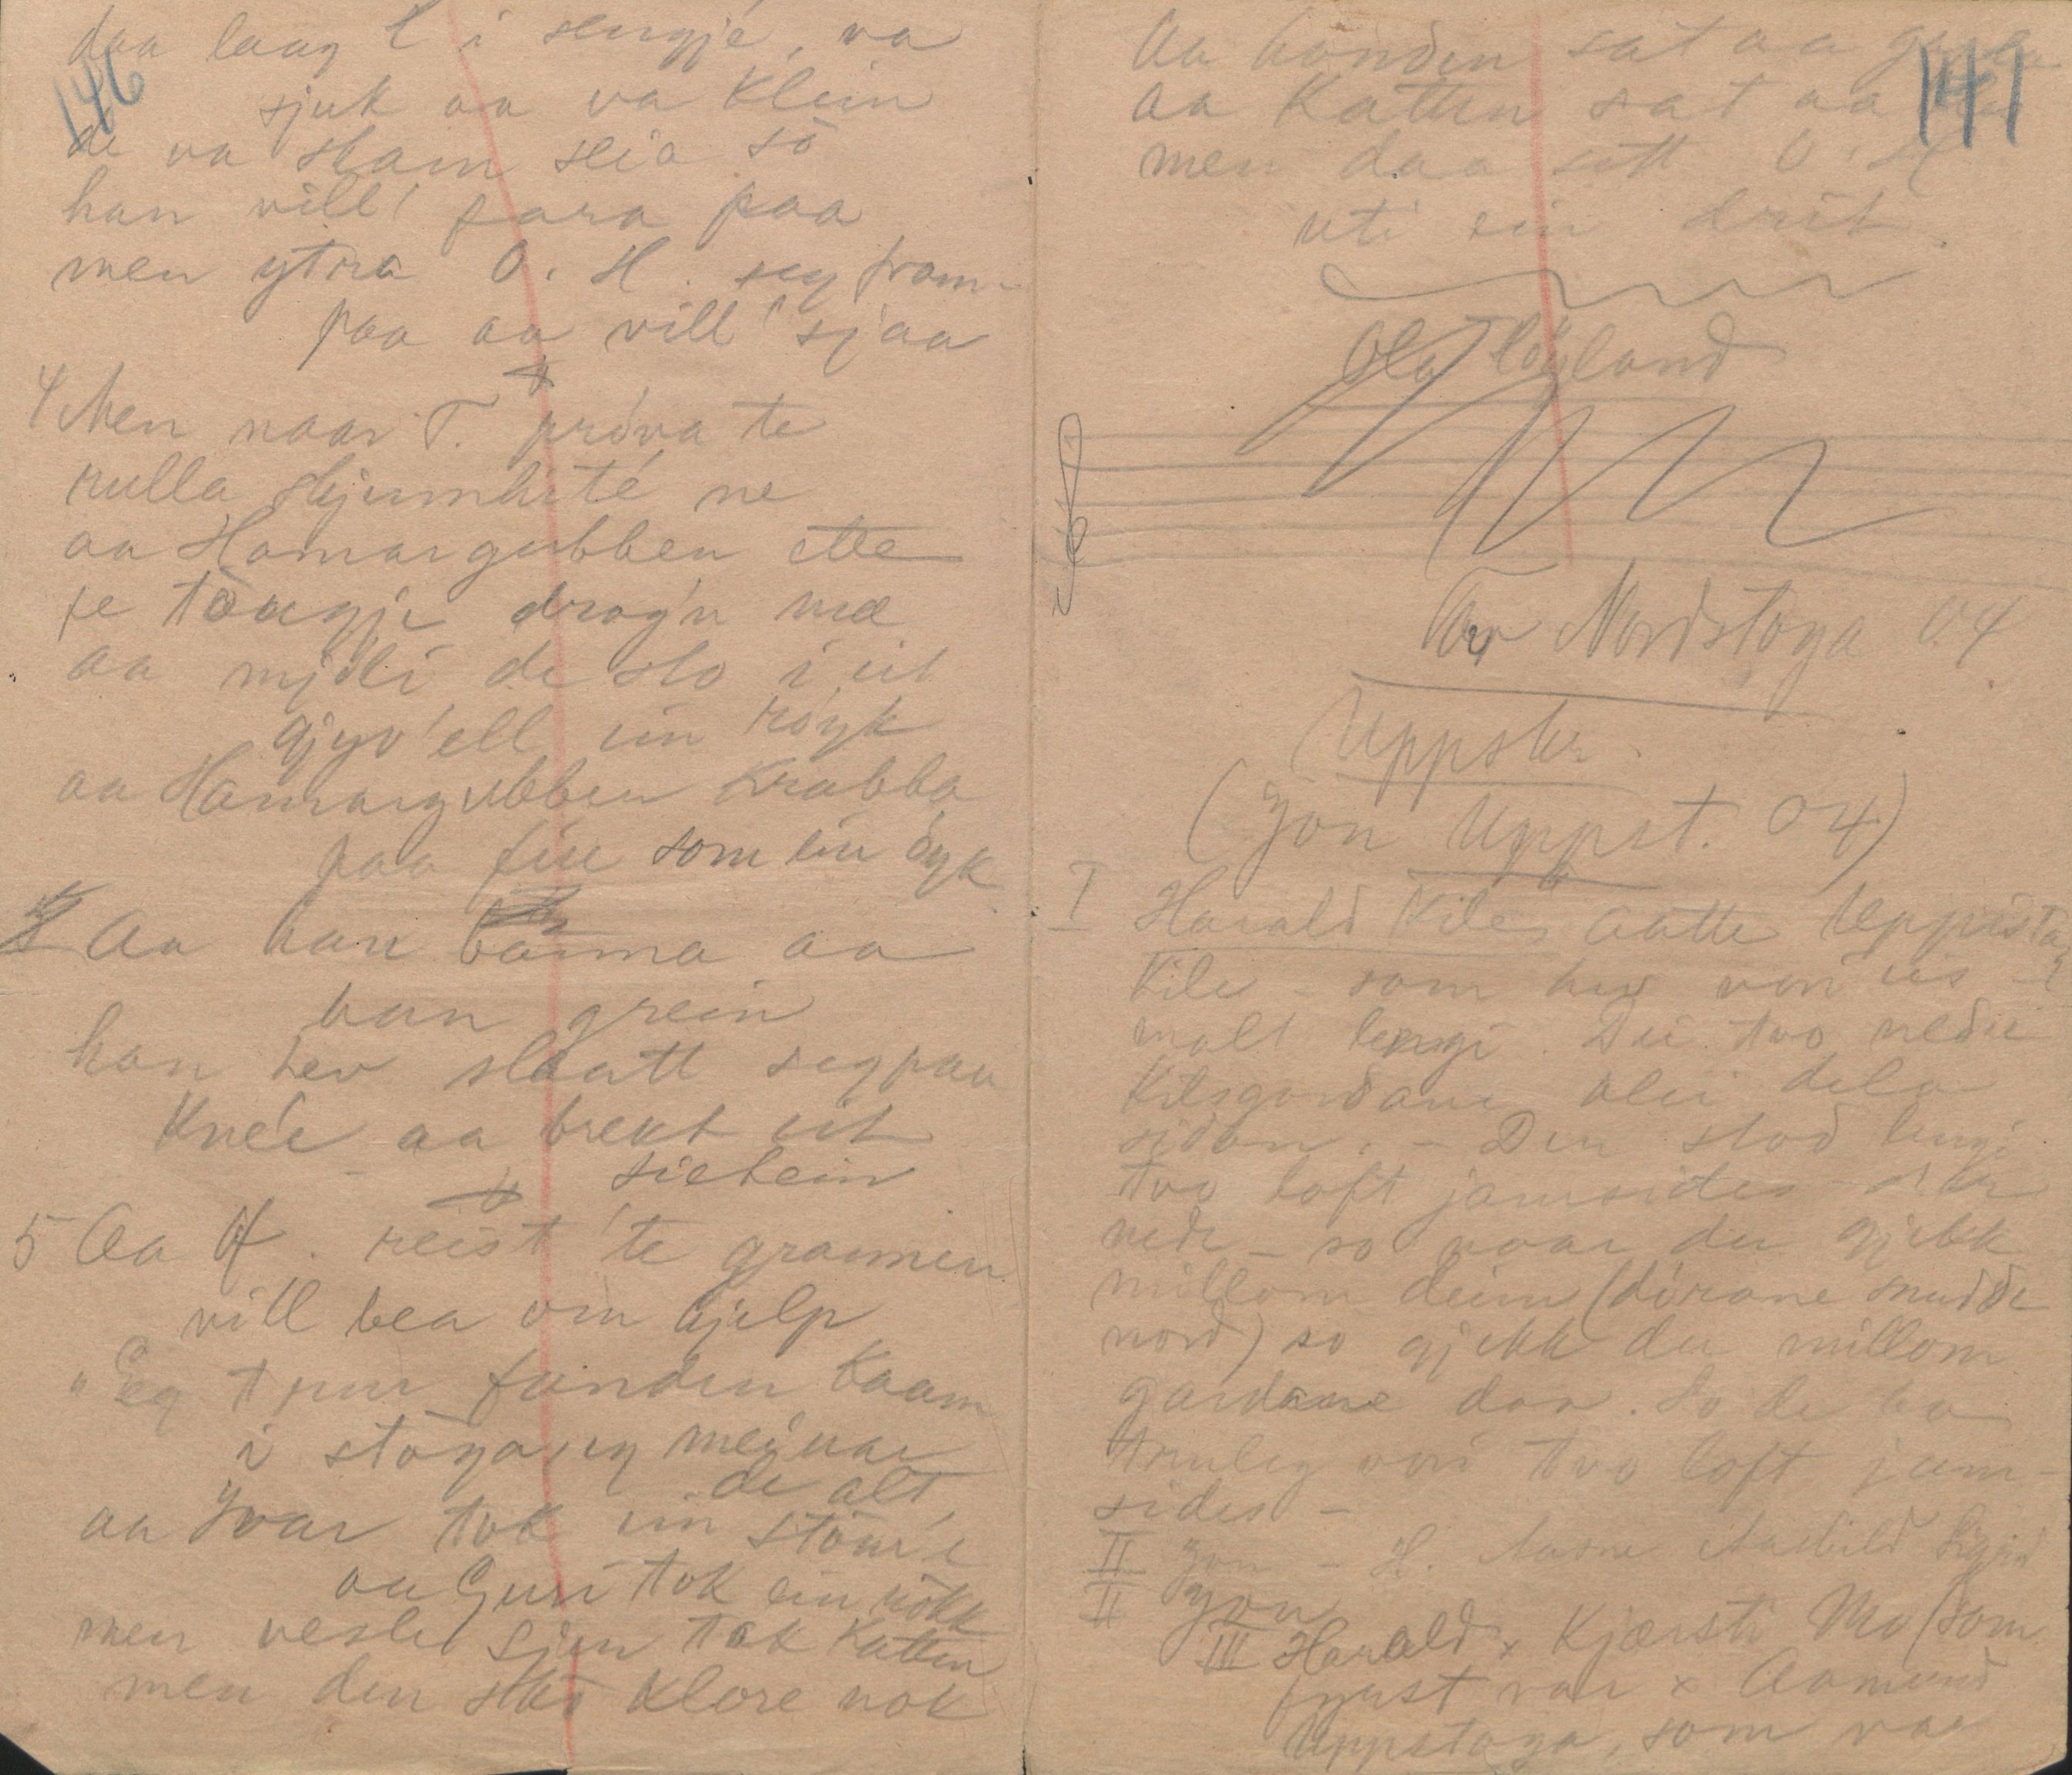 146
daa laag T i sengjé, va
sjuk aa va klein
de va skam slia so
han vill' fara paa
men ytra O. H. seg fram-
paa aa vill' sjaa
4 Men naar T. pröva te
rulla ne
aa Hamargubben ette
te taugji drog'n mæ
aa mjöli de sto i eit
gjyv' ell ein röyk
aa Hamargubben krabba
paa fire som ein öyk
Aa han banna aa
han grein
han hev slaatt seg paa
Kneé aa brekt eit
siebein
5 Aa H. reist' te grannen
vill bea om hjelp
"Eg funden kaam
i stoga, eg mei'nar
de alt
aa Ivar tok ein stöur'e
aa Guri tok ein
men vesle Sjur tok katten
men den sko klore nok
147
Aa honden sat aa
aa Katten sat aa
men daa sett O. H
uti ein drit.
Ola Höyland
Aav Nordstoga 04
Uppstr.
(Jon Uppst. 04)
I Harald Kile aatte Uppista
Kile - som hev vori eis -
mall lengi. Dei two nedre
Kilsgardane blei dela
sidan. - Der stod lengi
two loft jamsides - der
nede - so naar du gjekk
millom deim (dörane snudde
nord) so gjekk du millom
gardane daa. So de ha
truleg vori two loft jam-
sides -
II Jon - H. Aasne Aashild Sigrid
II Jon
III Harald x Kjærsti Mo (som
fyrst var x Aamund
Uppstoga, som var